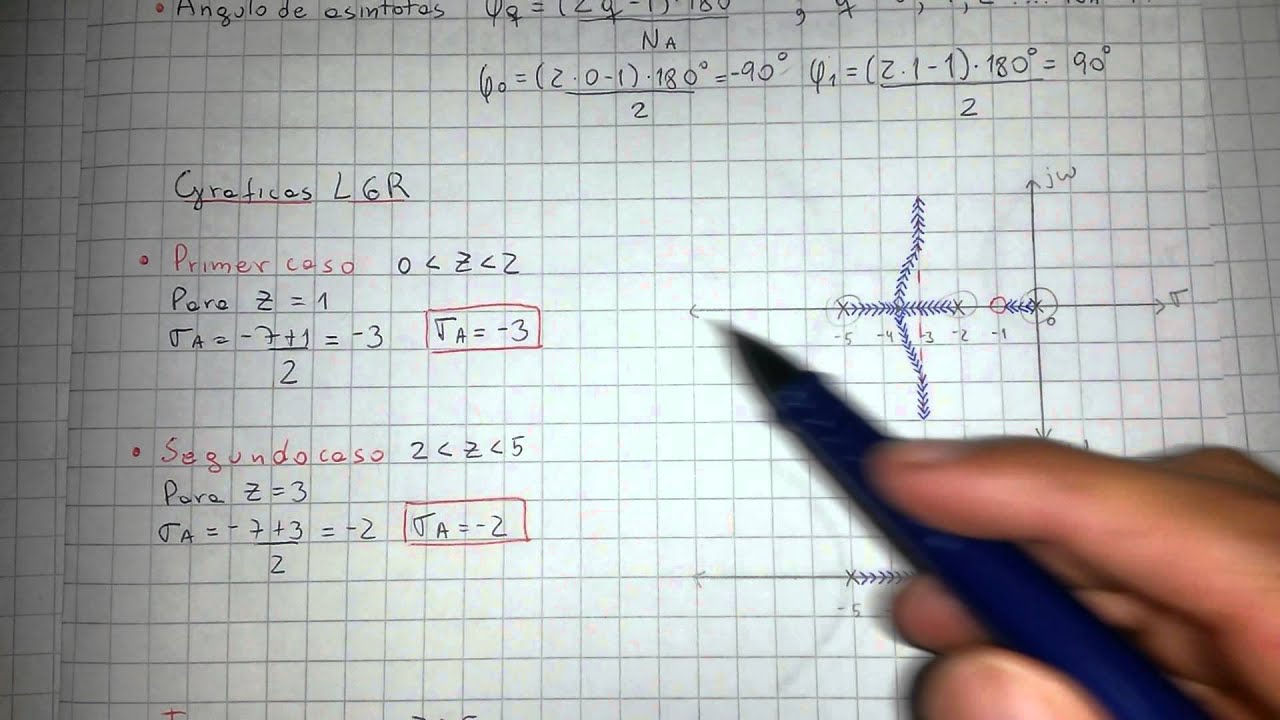 • Angulo de asintotas φq = (2q-1)·180
NA
φ0 = (2·0-1)·180° = -90° φ1 = (2.1-1)·180° = 90°
2 2
Graficas LGR
• Primer caso 0 < z < 2
Para z = 1
σA = -7+1 = -3 σA = -3
2
• Segundo caso 2 < z < 5
Para z = 3
σA = -7+3 = -2 σA = -2
2
jω
σ
-5 -4 -3 -2 -1 0
-5